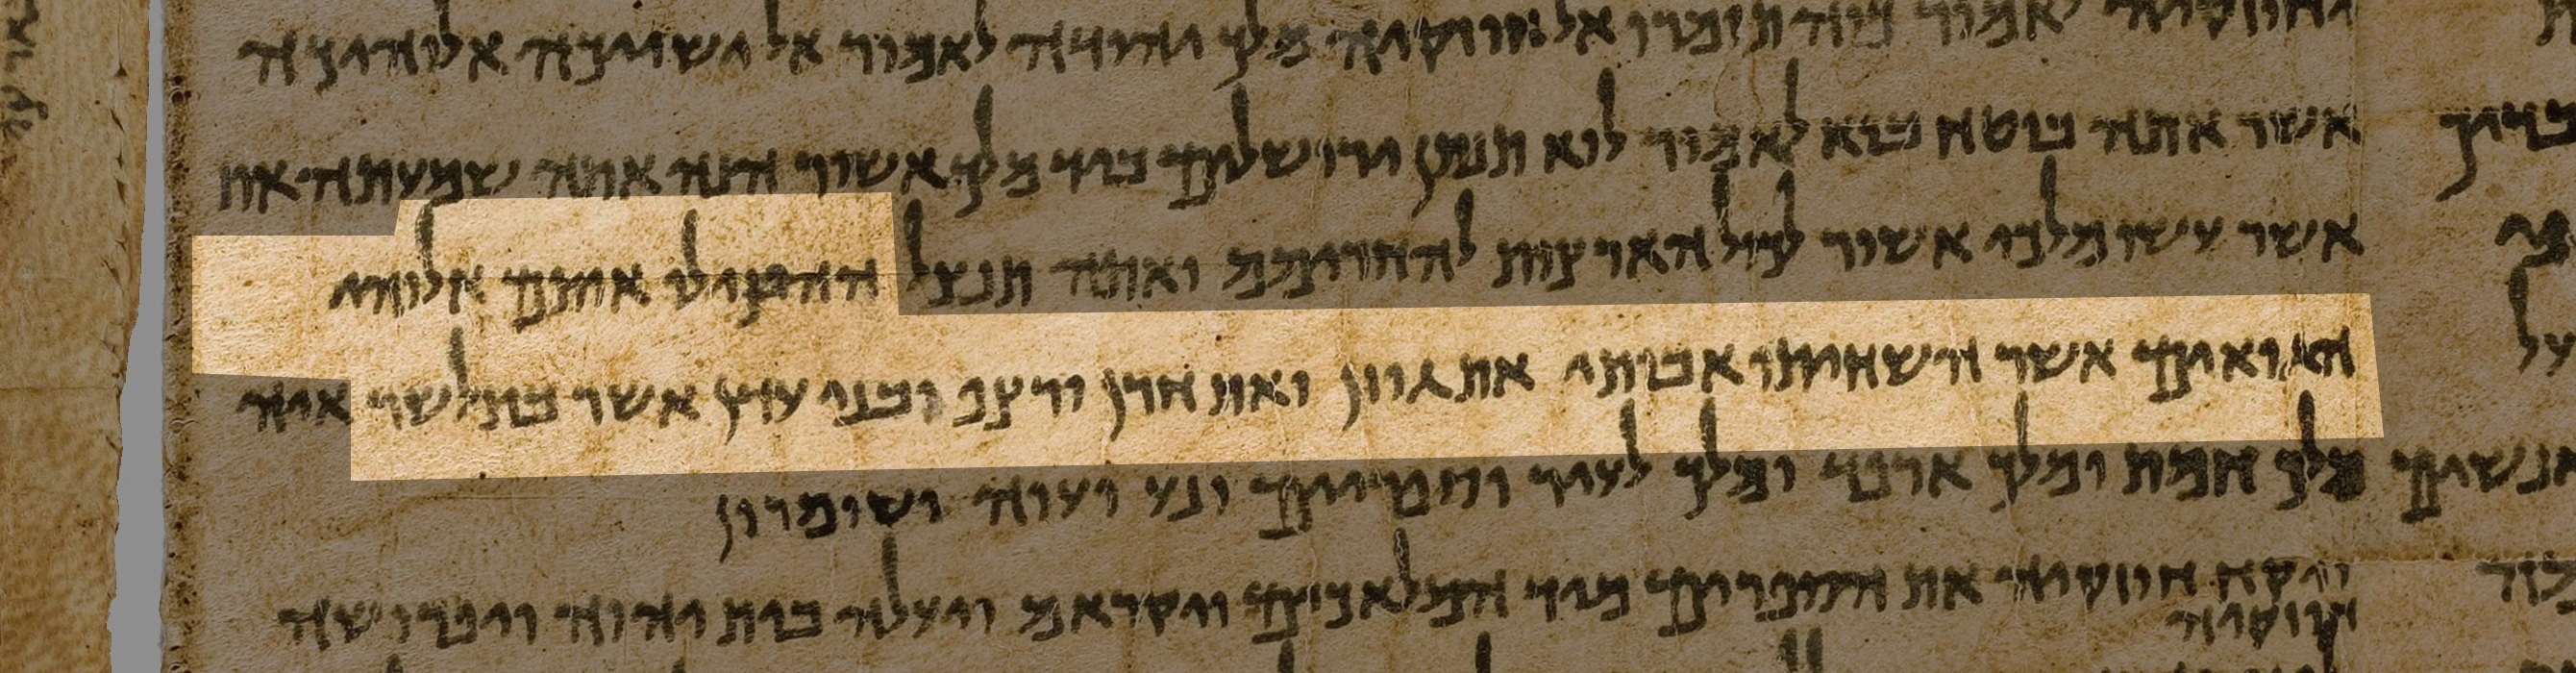 לאמור כוה תומרו אל חזוקיה מלך יהודה לאמור אל ישיאכה אלוהיכה
אשר אתה בוטח בוא לאמור לוא תנתן ירושלים ביד מלך אשור הנה אתה שמעתה את
אשר עשו מלכי אשור לכול הארצות להחרימם ואתה תנצל ההצילו אותם אלוהי
הגואים אשר השחיתו אבותי את גוזן ואת חרן ורצפ ובני עדן אשר בתלשר איה
מלך חמת ומלך ארפד ומלך לעיר ספרוים ונע ועוה ושומרון
ויקח חזוקיה את הספרים מיד המלאכים ויקראם ויעלה בית יהוה ויפרושה